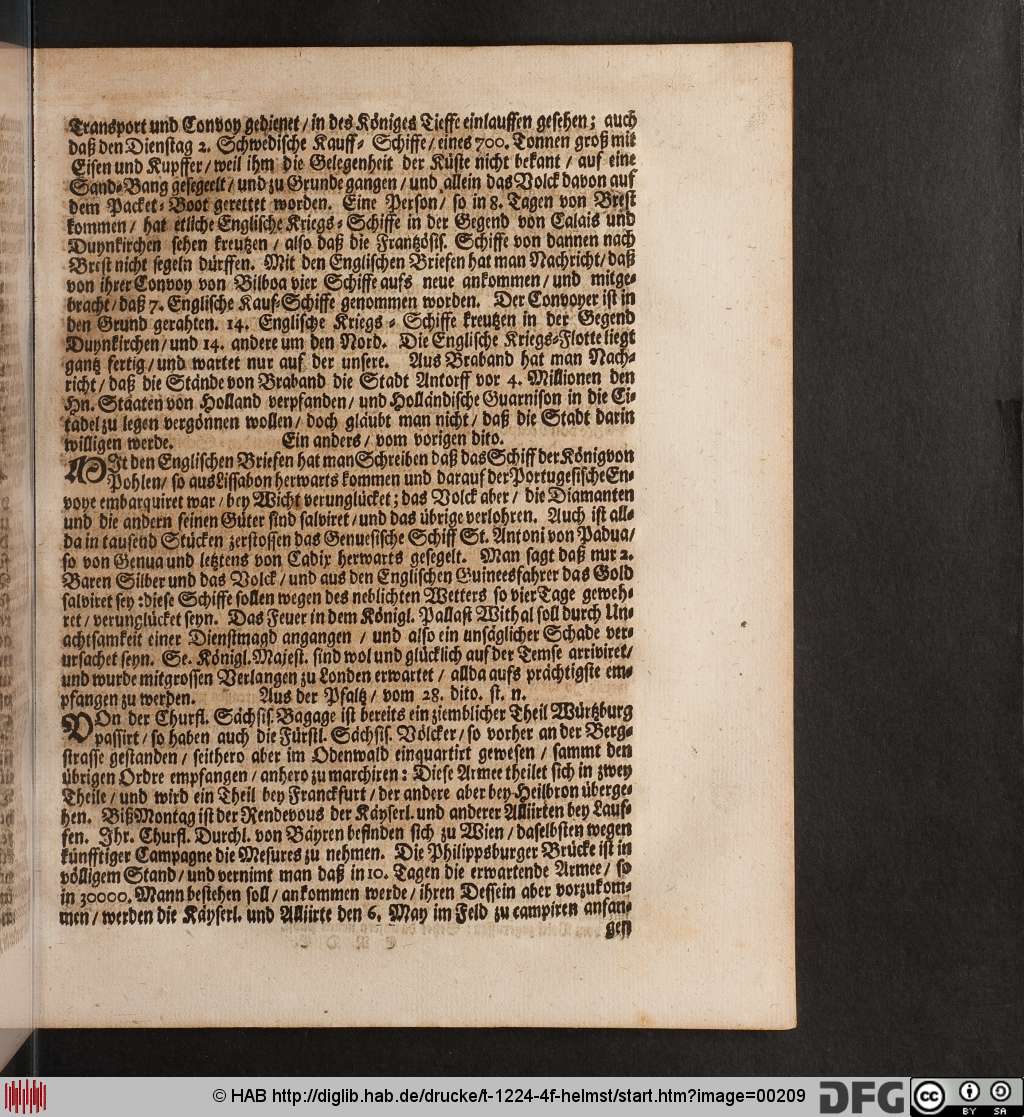 Transport und Convoy gedienet / in des Königes Tieffe einlauffen gesehen; auch
daß den Dienstag 2. Schwedische Kauff- Schiffe / eines 700. Tonnen groß mit
Eisen und Kupffer / weil ihm die Gelegenheit der Küste nicht bekant / auf eine
Sand-Bang gesegeelt / und zu Grunde gangen / und allein das Volck davon auf
dem Packet-Boot gerettet worden. Eine Person / so in 8. Tagen von Brest
kommen / hat etliche Englische Kriegs-Schiffe in der Gegend von Calais und
Duynkirchen sehen kreutzen / also daß die Frantzösis. Schiffe von dannen nach
Brest nicht segeln dürffen. Mit den Englischen Briefen hat man Nachricht / daß
von ihrer Convoy von Bilboa vier Schiffe aufs neue ankommen / und mitge-
bracht / daß 7. Englische Kauf-Schiffe genommen worden. Der Convoyer ist in
den Grund gerahten. 14. Englische Kriegs-Schiffe kreutzen in der Gegend
Duynkirchen / und 14. andere um den Nord. Die Englische Kriegs-Flotte liegt
gantz fertig / und wartet nur auf der unsere. Aus Braband hat man Nach-
richt / daß die Stände von Braband die Stadt Antorff vor 4. Millionen den
Hn. Staaten von Holland verpfanden / und Holländische Guarnison in die Ci-
tadel zu legen vergönnen wollen / doch gläubt man nicht / daß die Stadt darin
willigen werde. Ein anders / vom vorigen dito.
MIt den Englischen Briefen hat man Schreiben daß das Schiff der König von
Pohlen / so aus Lissabon herwarts kommen und darauf der Portugesische En-
voye embarquiret war / bey Wicht verunglücket; das Volck aber / die Diamanten
und die andern feinen Güter sind salviret / und das übrige verlohren. Auch ist all-
da in tausend Stücken zerstossen das Genuesische Schiff St. Antoni von Padua /
so von Genua und letztens von Cadix herwarts gesegelt. Man sagt daß nur 2.
Baren Silber und das Volck / und aus den Englischen Guineesfahrer das Gold
salviret sey: diese Schiffe sollen wegen des neblichten Wetters so vier Tage geweh-
ret / verunglücket seyn. Das Feuer in dem Königl. Pallast Withal soll durch Un-
achtsamkeit einer Dienstmagd angangen / und also ein unsäglicher Schade ver-
ursachet seyn. Se. Königl. Majest. sind wol und glücklich auf der Temse arriviret /
und wurde mit grossen Verlangen zu Londen erwartet / allda aufs prächtigste em-
pfangen zu werden. Aus der Pfaltz / vom 28. dito. st. n.
VOn der Churfl. Sächsis. Bagage ist bereits ein ziemblicher Theil Würtzburg
passirt / so haben auch die Fürstl. Sächsis. Völcker / so vorher an der Berg-
strasse gestanden / seithero aber im Odenwald einquartirt gewesen / sammt den
übrigen Ordre empfangen / anhero zu marchiren: Diese Armee theilet sich in zwey
Theile / und wird ein Theil bey Franckfurt / der andere aber bey Heilbron überge-
hen. Biß Montag ist der Rendevous der Käyserl. und anderer Alliirten bey Lauf-
fen. Ihr. Churfl. Durchl. von Bäyren befinden sich zu Wien / daselbsten wegen
künfftiger Campagne die Mesures zu nehmen. Die Philippsburger Brücke ist in
völligem Stand / und vernimt man daß in 10. Tagen die erwartende Armee / so
in 30000. Mann bestehen soll / ankommen werde / ihren Dessein aber vorzukom-
men / werden die Käyserl. und Alliirte den 6. May im Feld zu campiren anfan-
gen
© HAB http://diglib.hab.de/drucke/t-1224-4f-helmst/start.htm?image=00209
DFG
cc
BY SA